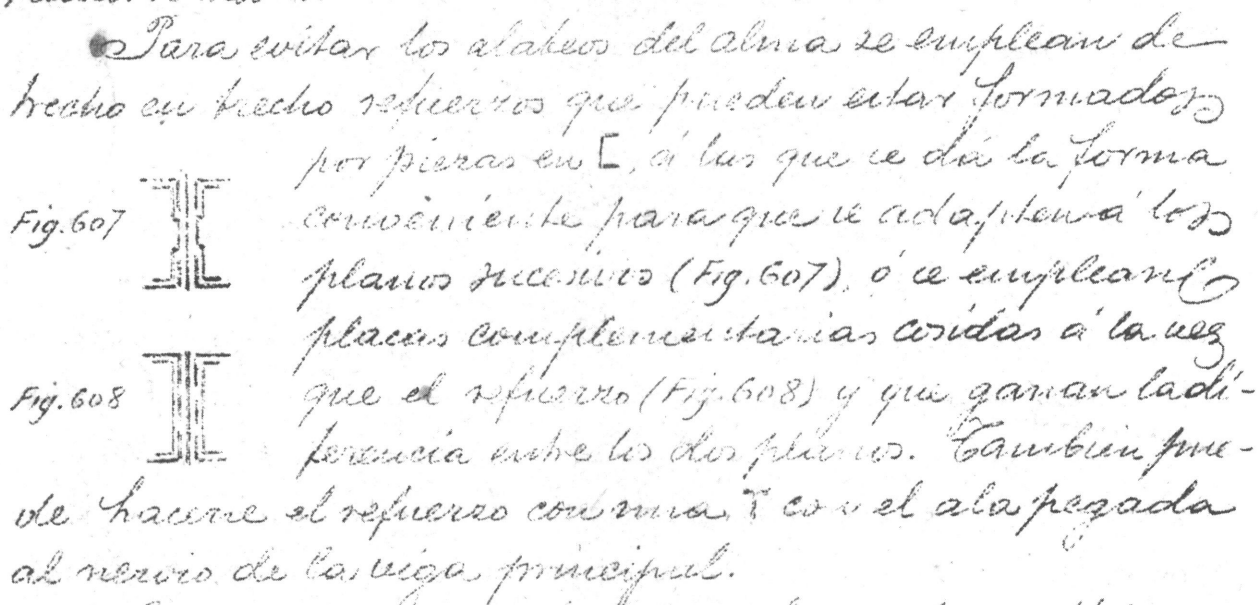 Para evitar los alabeos del alma se emplean de
trecho en trecho refuerzos que pueden estar formados
por piezas en [, á las que se dá la forma
Fig. 607 conveniente para que se adapten á los
planos sucesivos (Fig. 607), ó se emplean
placas complementarias cosidas á la vez
Fig. 608 que el refuerzo (Fig. 608) y que ganan la di-
ferencia entre los dos planos. Tambien pue-
de hacerse el refuerzo con una T con el ala pegada
al nervio de la viga principal.